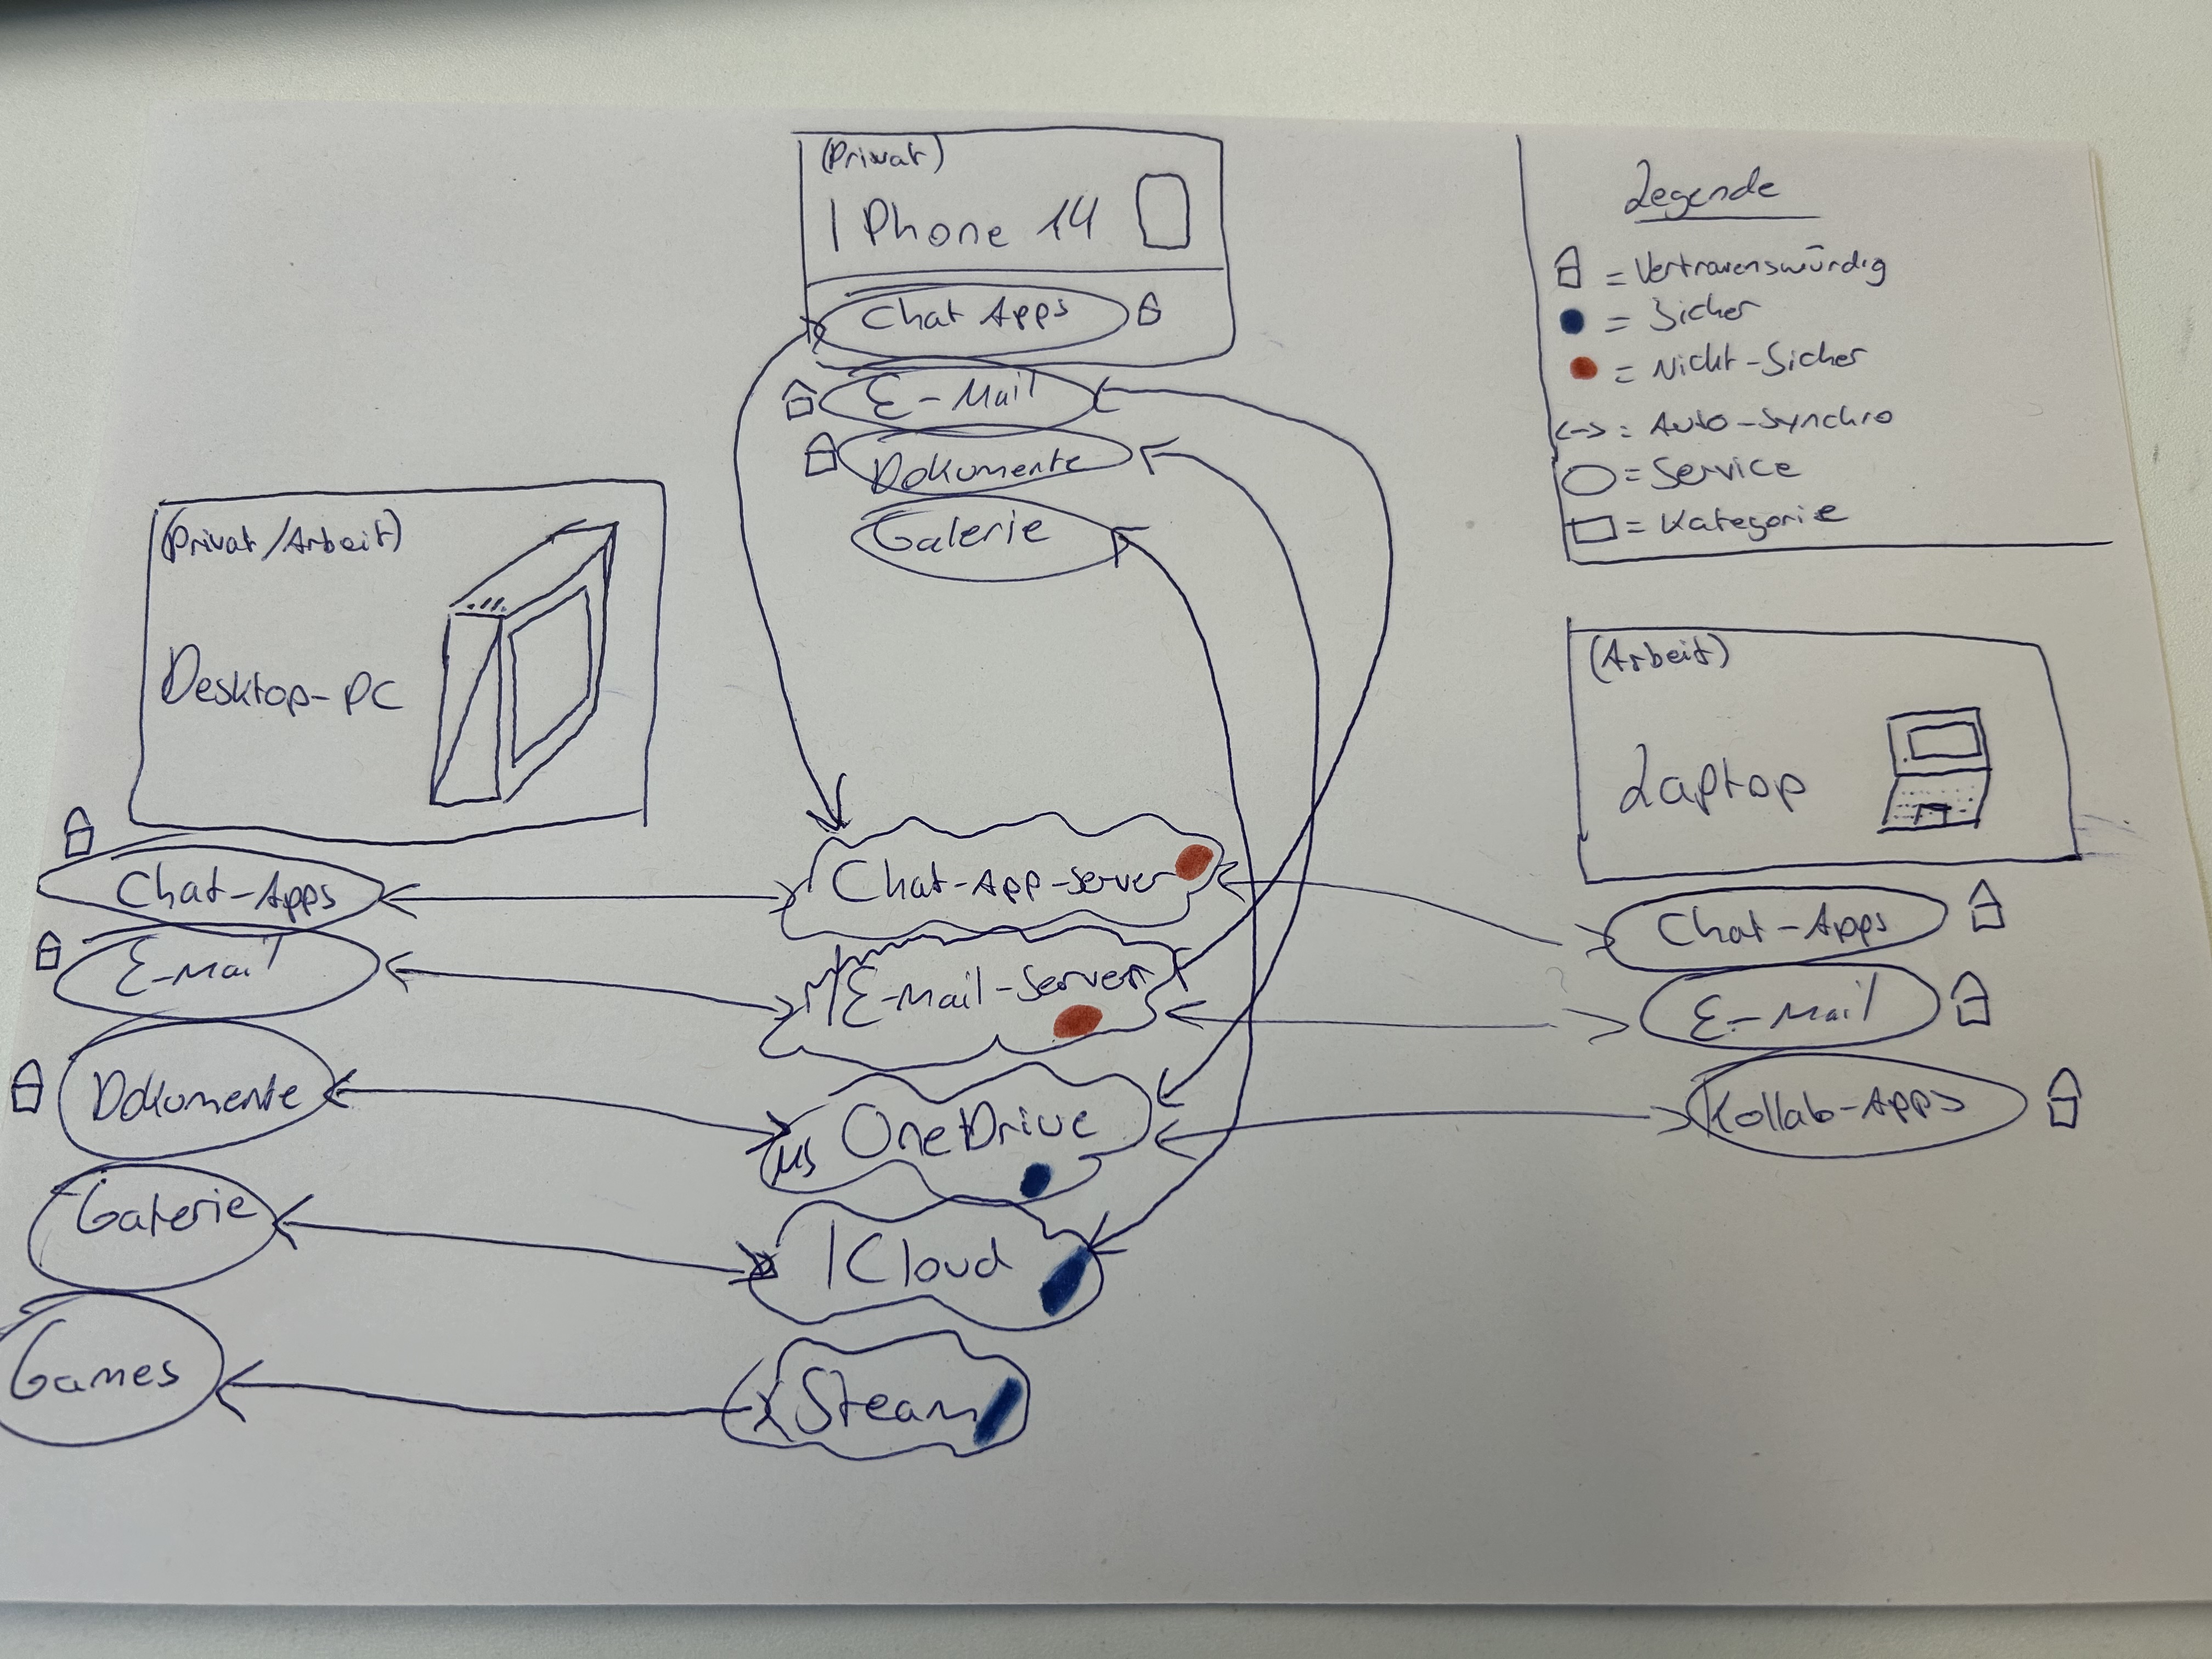 (Privat)
I Phone 14
Chat Apps
E-Mail
Dokumente
Galerie
Legende
= Vertrauenswürdig
= Sicher
= Nicht-Sicher
<-> = Auto-Synchro
= Service
= Kategorie
(Privat/Arbeit)
Desktop-PC
Chat-Apps
E-Mail
Dokumente
Galerie
Games
Chat-App-Server
E-Mail-Server
MS OneDrive
ICloud
Steam
(Arbeit)
Laptop
Chat-Apps
E-Mail
Kollab-Apps